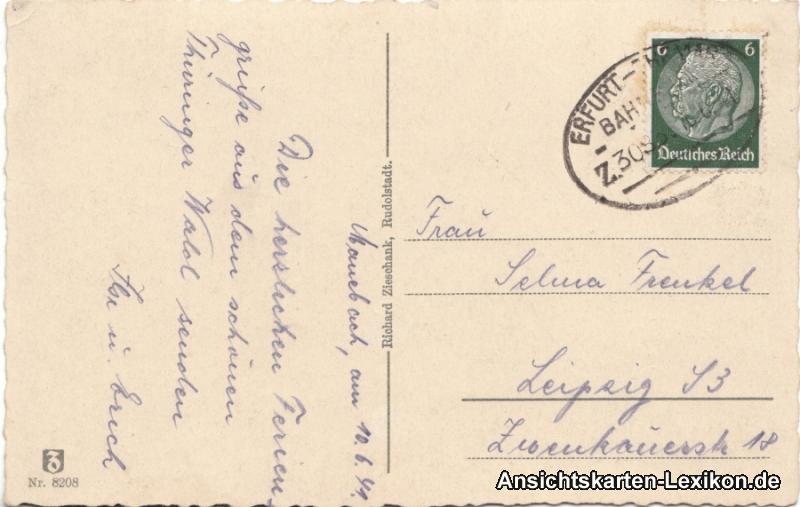 Manebach, am 10.6.41.
Die herzlichen Ferien
grüße aus dem schönen
Thüringer Wald senden
Ilse u. Erich
Richard Zieschank, Rudolstadt.
Nr. 8208
6 6
Deutsches Reich
ERFURT
BAHN
Z.308
Frau
Selma Frenkel
Leipzig S3
Zwenkauerstr 18
Ansichtskarten-Lexikon.de